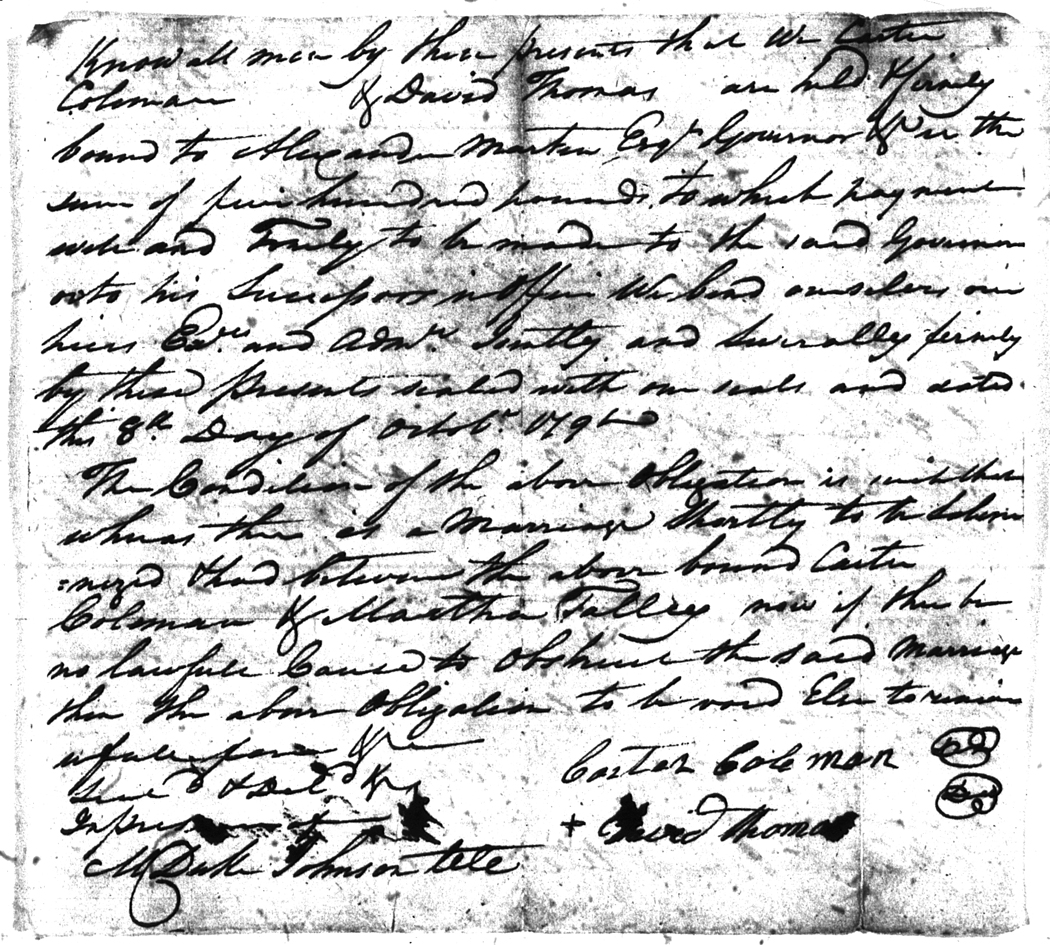 Know all men by these presents that We Carter
Coleman & David Thomas are held & firmly
bound to Alexander Martin Esqr Governor &c in the
sum of five hundred pounds, to which payment
well and Truly to be made to the said Governor
or to his Successors in Office We bind ourselves our
heirs Exrs. and Admrs Jointly and Severally firmly
by these presents sealed with our seals and dated
this 8th Day of Octobr 1792
The Condition of the above Obligation is such that
whereas there is a Marriage Shortly to be Solem
=nized & had between the above bound Carter
Coleman & Martha Talley now if there be
no lawfull Cause to Obstruct the said Marriage
then the above Obligation to be void Else to remain
in full force &c
Carter Coleman
Seald & Deld &c
In presence of
David Thomas
M Duke Johnson